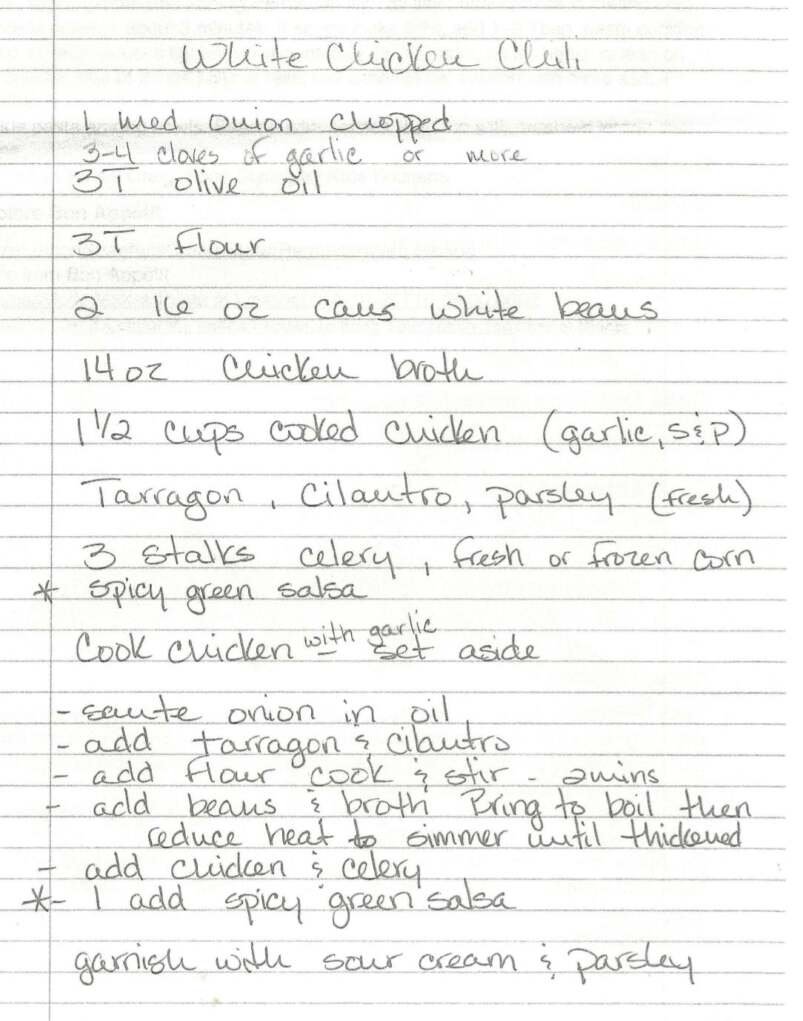 White Chicken Chili
1 med onion chopped
3-4 cloves of garlic or more
3T olive oil
3T flour
2 16 oz cans white beans
14 oz chicken broth
1 1/2 cups cooked chicken (garlic, S & P)
Tarragon, Cilantro, parsley (fresh)
3 stalks celery, fresh or frozen corn
* spicy green salsa
Cook chicken with garlic set aside
- saute onion in oil
- add tarragon & cilantro
- add flour cook & stir - 2mins
- add beans & broth Bring to boil then
reduce heat to simmer until thickened
- add chicken & celery
*- I add spicy green salsa
garnish with sour cream & parsley